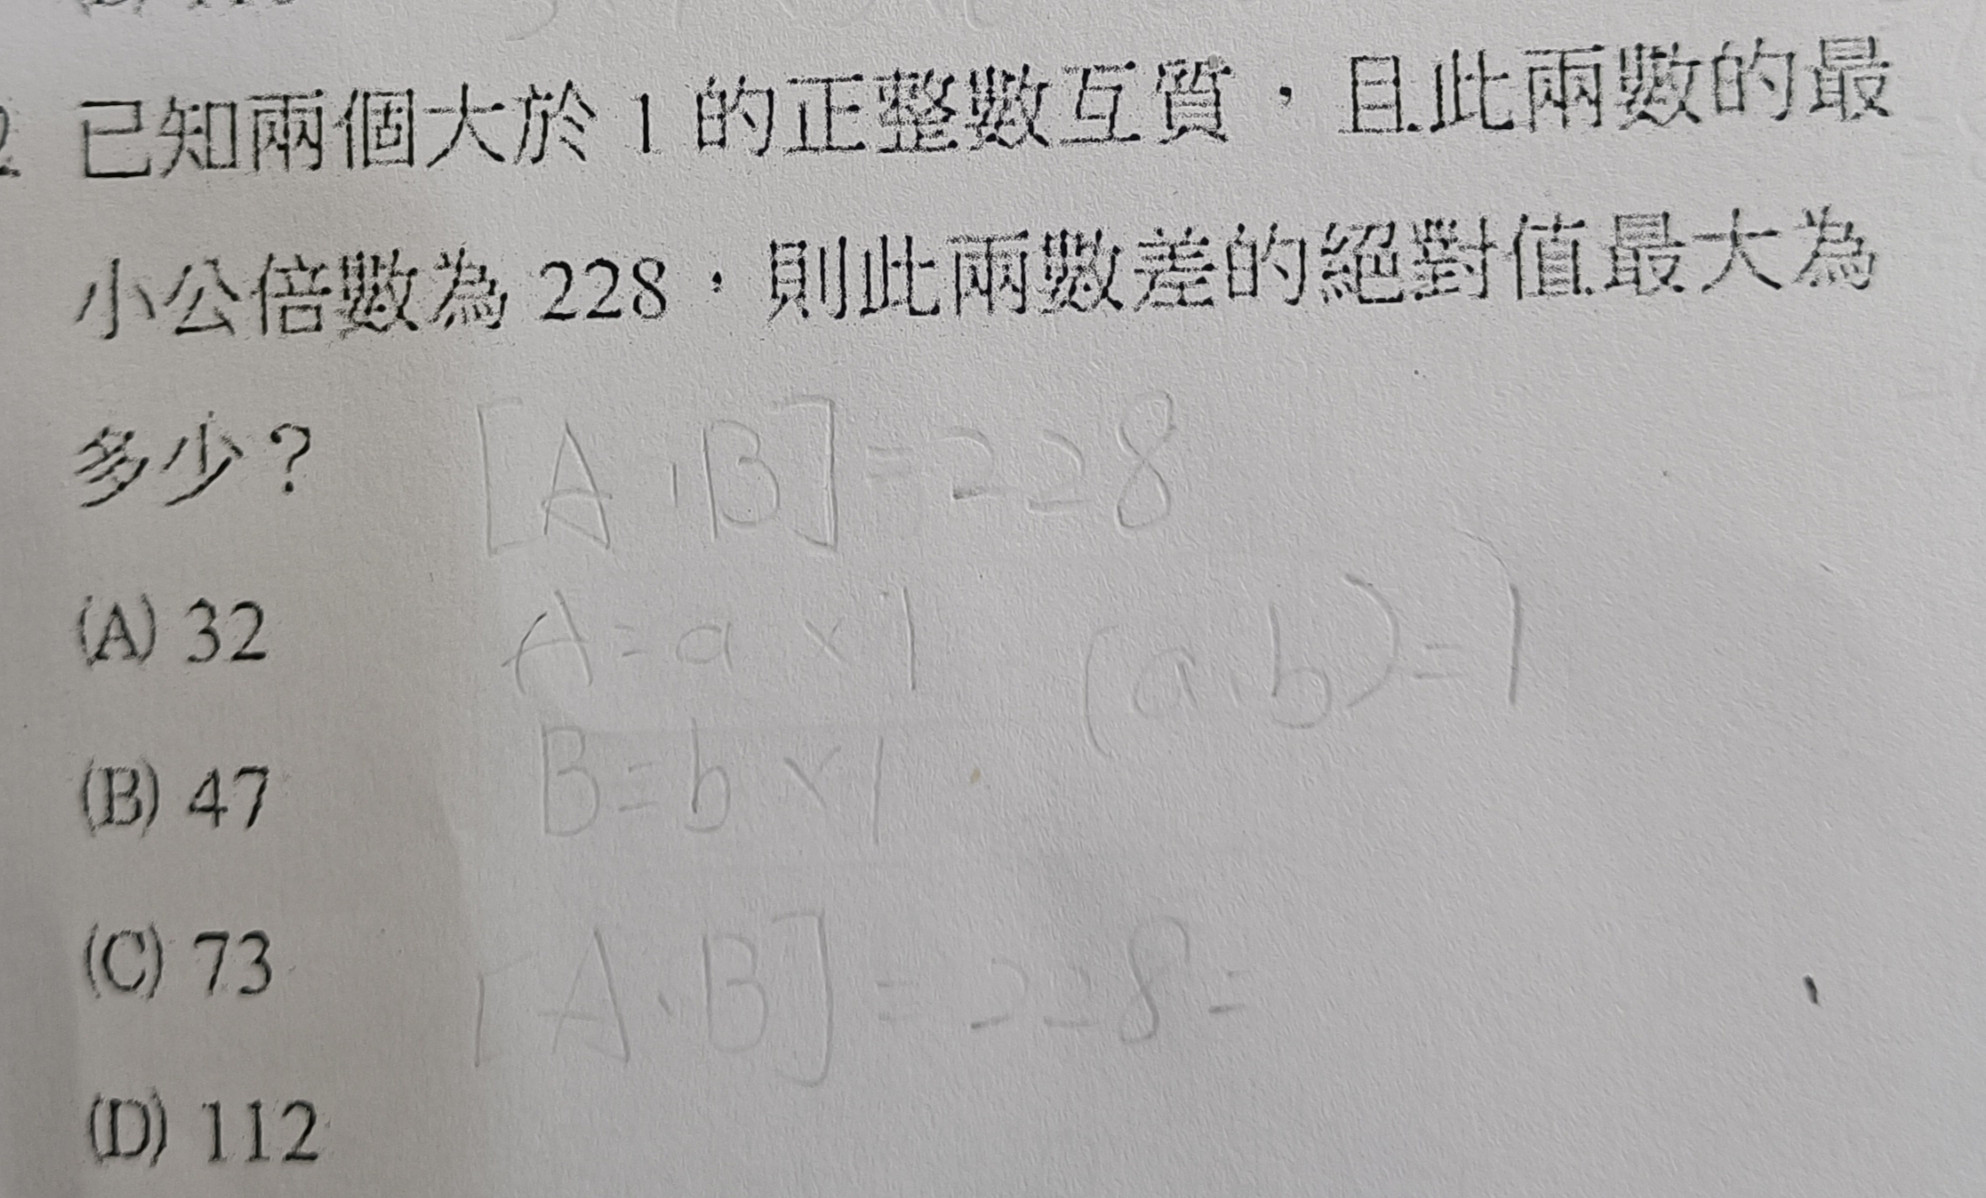 2. 已知兩個大於 1 的正整數互質，且此兩數的最
小公倍數為 228，則此兩數差的絕對值最大為
多少？
[A,B]=228
(A) 32
A=a×1 (a,b)=1
(B) 47
B=b×1
(C) 73
[A,B]=228=
(D) 112